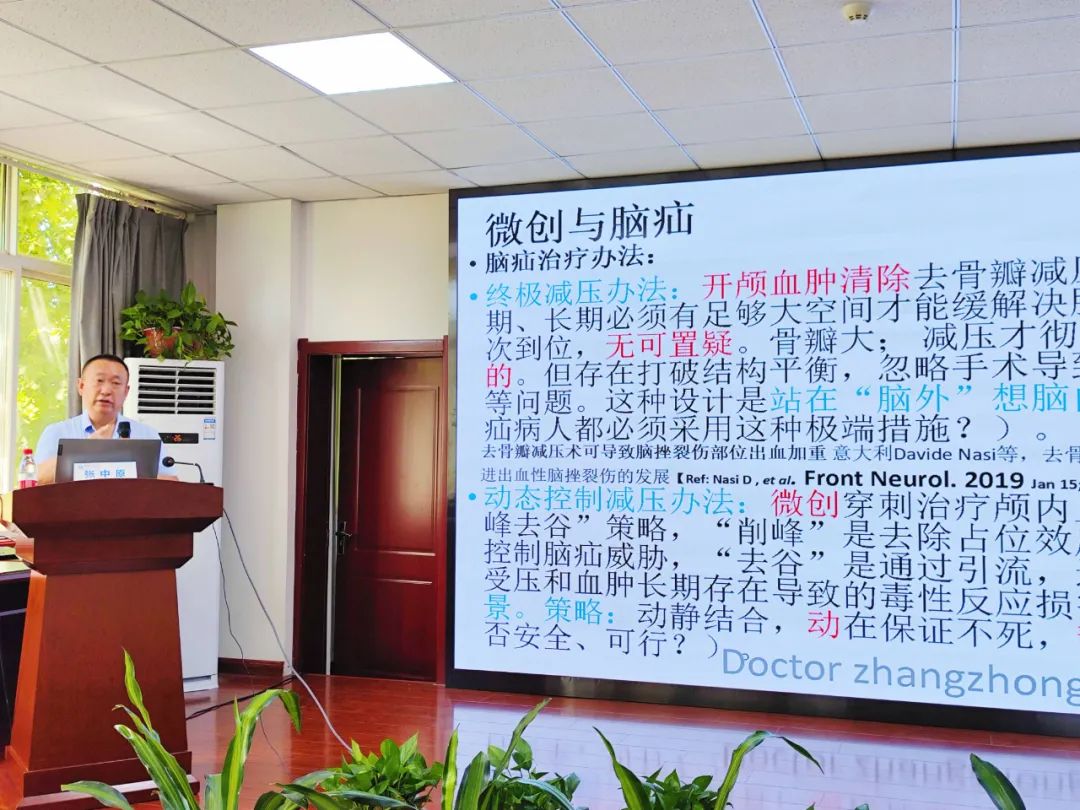 微创与脑疝
• 脑疝治疗办法：
• 终极减压办法：开颅血肿清除去骨瓣减压
期、长期必须有足够大空间才能缓解决脑
次到位，无可置疑。骨瓣大；减压才彻
的。但存在打破结构平衡，忽略手术导致
等问题。这种设计是站在“脑外”想脑
疝病人都必须采用这种极端措施？）。
去骨瓣减压术可导致脑挫裂伤部位出血加重 意大利Davide Nasi等，去骨
进出血性脑挫裂伤的发展【Ref: Nasi D , et al. Front Neurol. 2019 Jan 15;
• 动态控制减压办法：微创穿刺治疗颅内
峰去谷”策略，“削峰”是去除占位效应
控制脑疝威胁，“去谷”是通过引流，
受压和血肿长期存在导致的毒性反应损
景。策略：动静结合，动在保证不死，
否安全、可行？）
Doctor zhangzhong
张中原